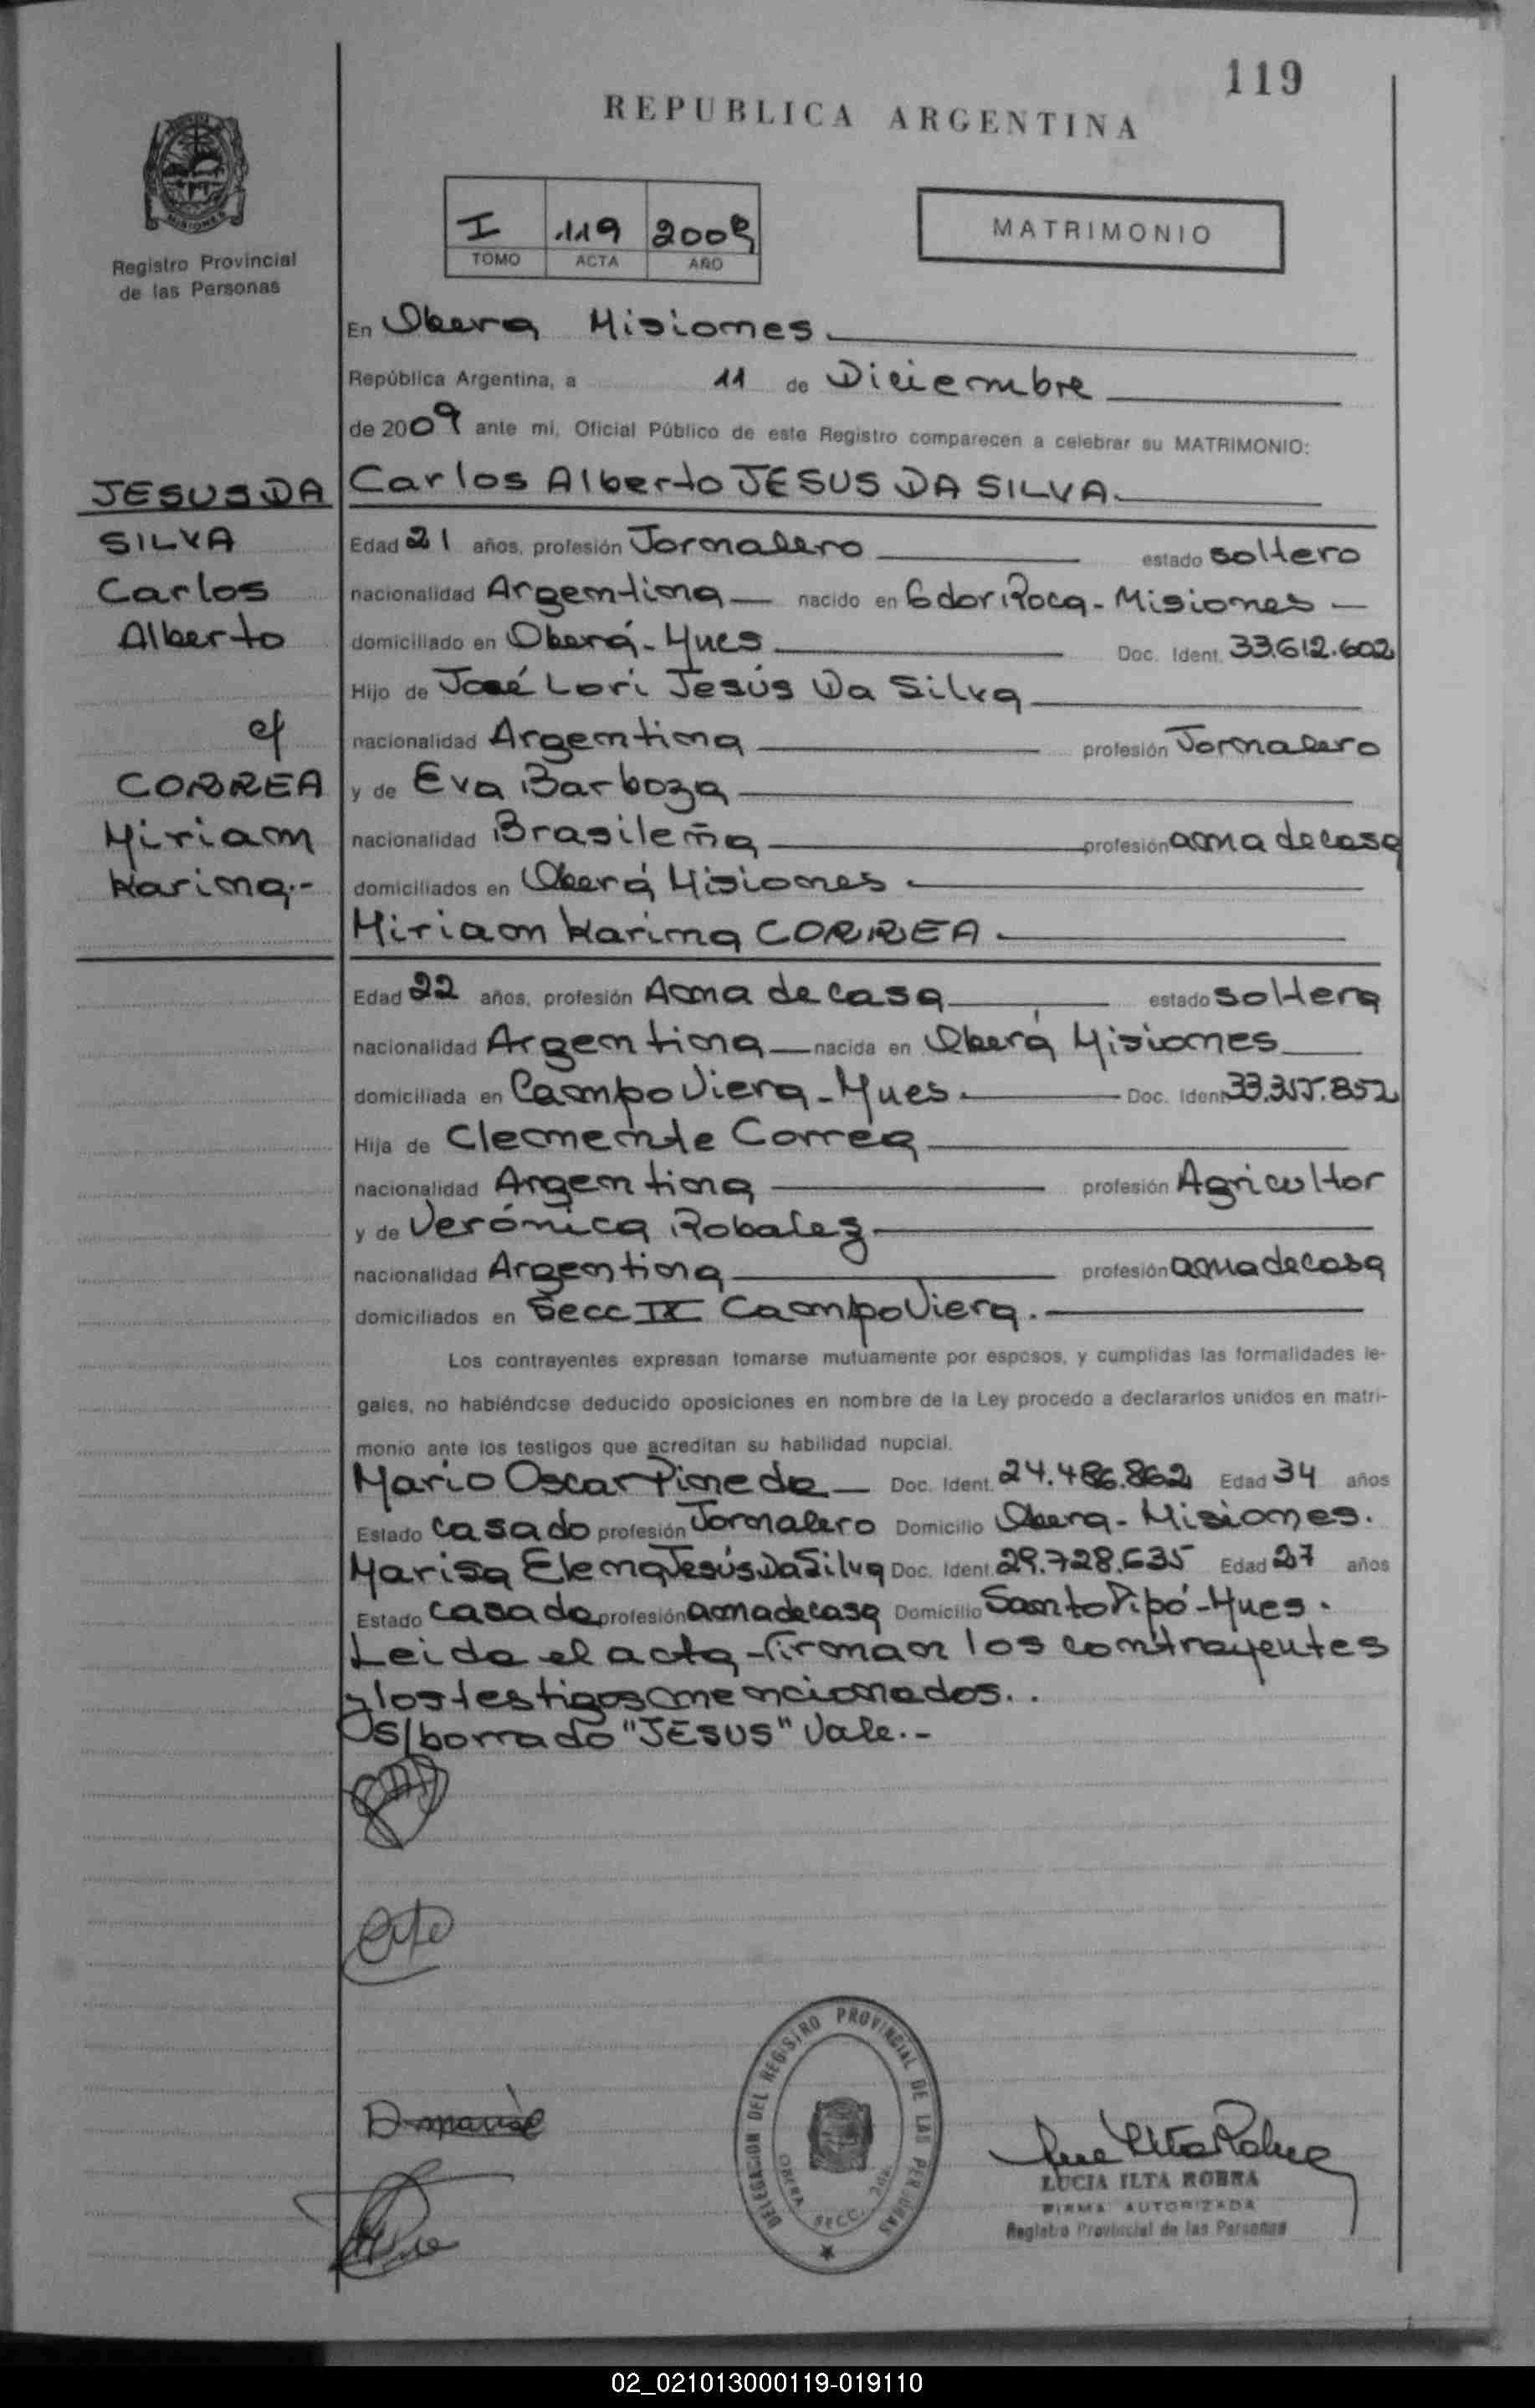 119
REPUBLICA ARGENTINA
MISIONES
Registro Provincial
de las Personas
I 119 2009
TOMO ACTA AÑO
MATRIMONIO
En Obera Misiones
República Argentina, a 11 de Diciembre
de 2009 ante mi, Oficial Público de este Registro comparecen a celebrar su MATRIMONIO:
JESUS DA
SILVA
Carlos
Alberto
c/
CORREA
Miriam
Karina.-
Carlos Alberto JESUS DA SILVA
Edad 21 años, profesión Jornalero estado soltero
nacionalidad Argentina nacido en Gdor. Roca - Misiones
domiciliado en Oberá - Mnes Doc. Ident. 33.612.602
Hijo de José Lori Jesús Da Silva
nacionalidad Argentina profesión Jornalero
y de Eva Barboza
nacionalidad Brasileña profesión ama de casa
domiciliados en Oberá Misiones
Miriam Karina CORREA
Edad 22 años, profesión Ama de casa estado soltera
nacionalidad Argentina nacida en Oberá Misiones
domiciliada en Campo Viera - Mnes. Doc. Ident. 33.355.852
Hija de Clemente Correa
nacionalidad Argentina profesión Agricultor
y de Verónica Robalez
nacionalidad Argentina profesión ama de casa
domiciliados en Secc IX Campo Viera.
Los contrayentes expresan tomarse mutuamente por esposos, y cumplidas las formalidades le-
gales, no habiéndose deducido oposiciones en nombre de la Ley procedo a declararlos unidos en matri-
monio ante los testigos que acreditan su habilidad nupcial.
Mario Oscar Pineda Doc. Ident. 24.486.862 Edad 34 años
Estado casado profesión Jornalero Domicilio Obera - Misiones.
Marisa Elena Jesús Da Silva Doc. Ident. 29.728.635 Edad 27 años
Estado casada profesión ama de casa Domicilio Santo Pipó - Mnes.
Leida el acta - firman los contrayentes
y los testigos mencionados..
S/borrado "JESUS" Vale.-
DELEGACION DEL REGISTRO PROVINCIAL DE LAS PERSONAS
OBERA SECC. 2da.
LUCIA ILTA ROBRA
FIRMA AUTORIZADA
Registro Provincial de las Personas
02_021013000119-019110